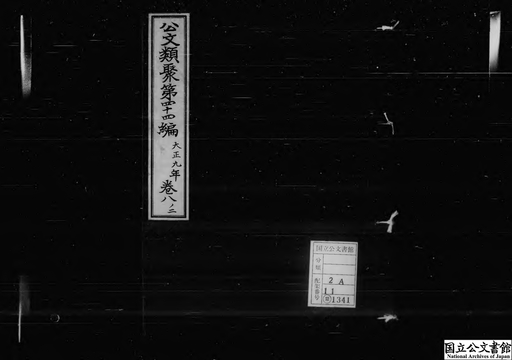 公文類聚第四十四編 大正九年 巻八ノ二
国立公文書館
分類
配架番号
2A
11
1341
国立公文書館
National Archives of Japan